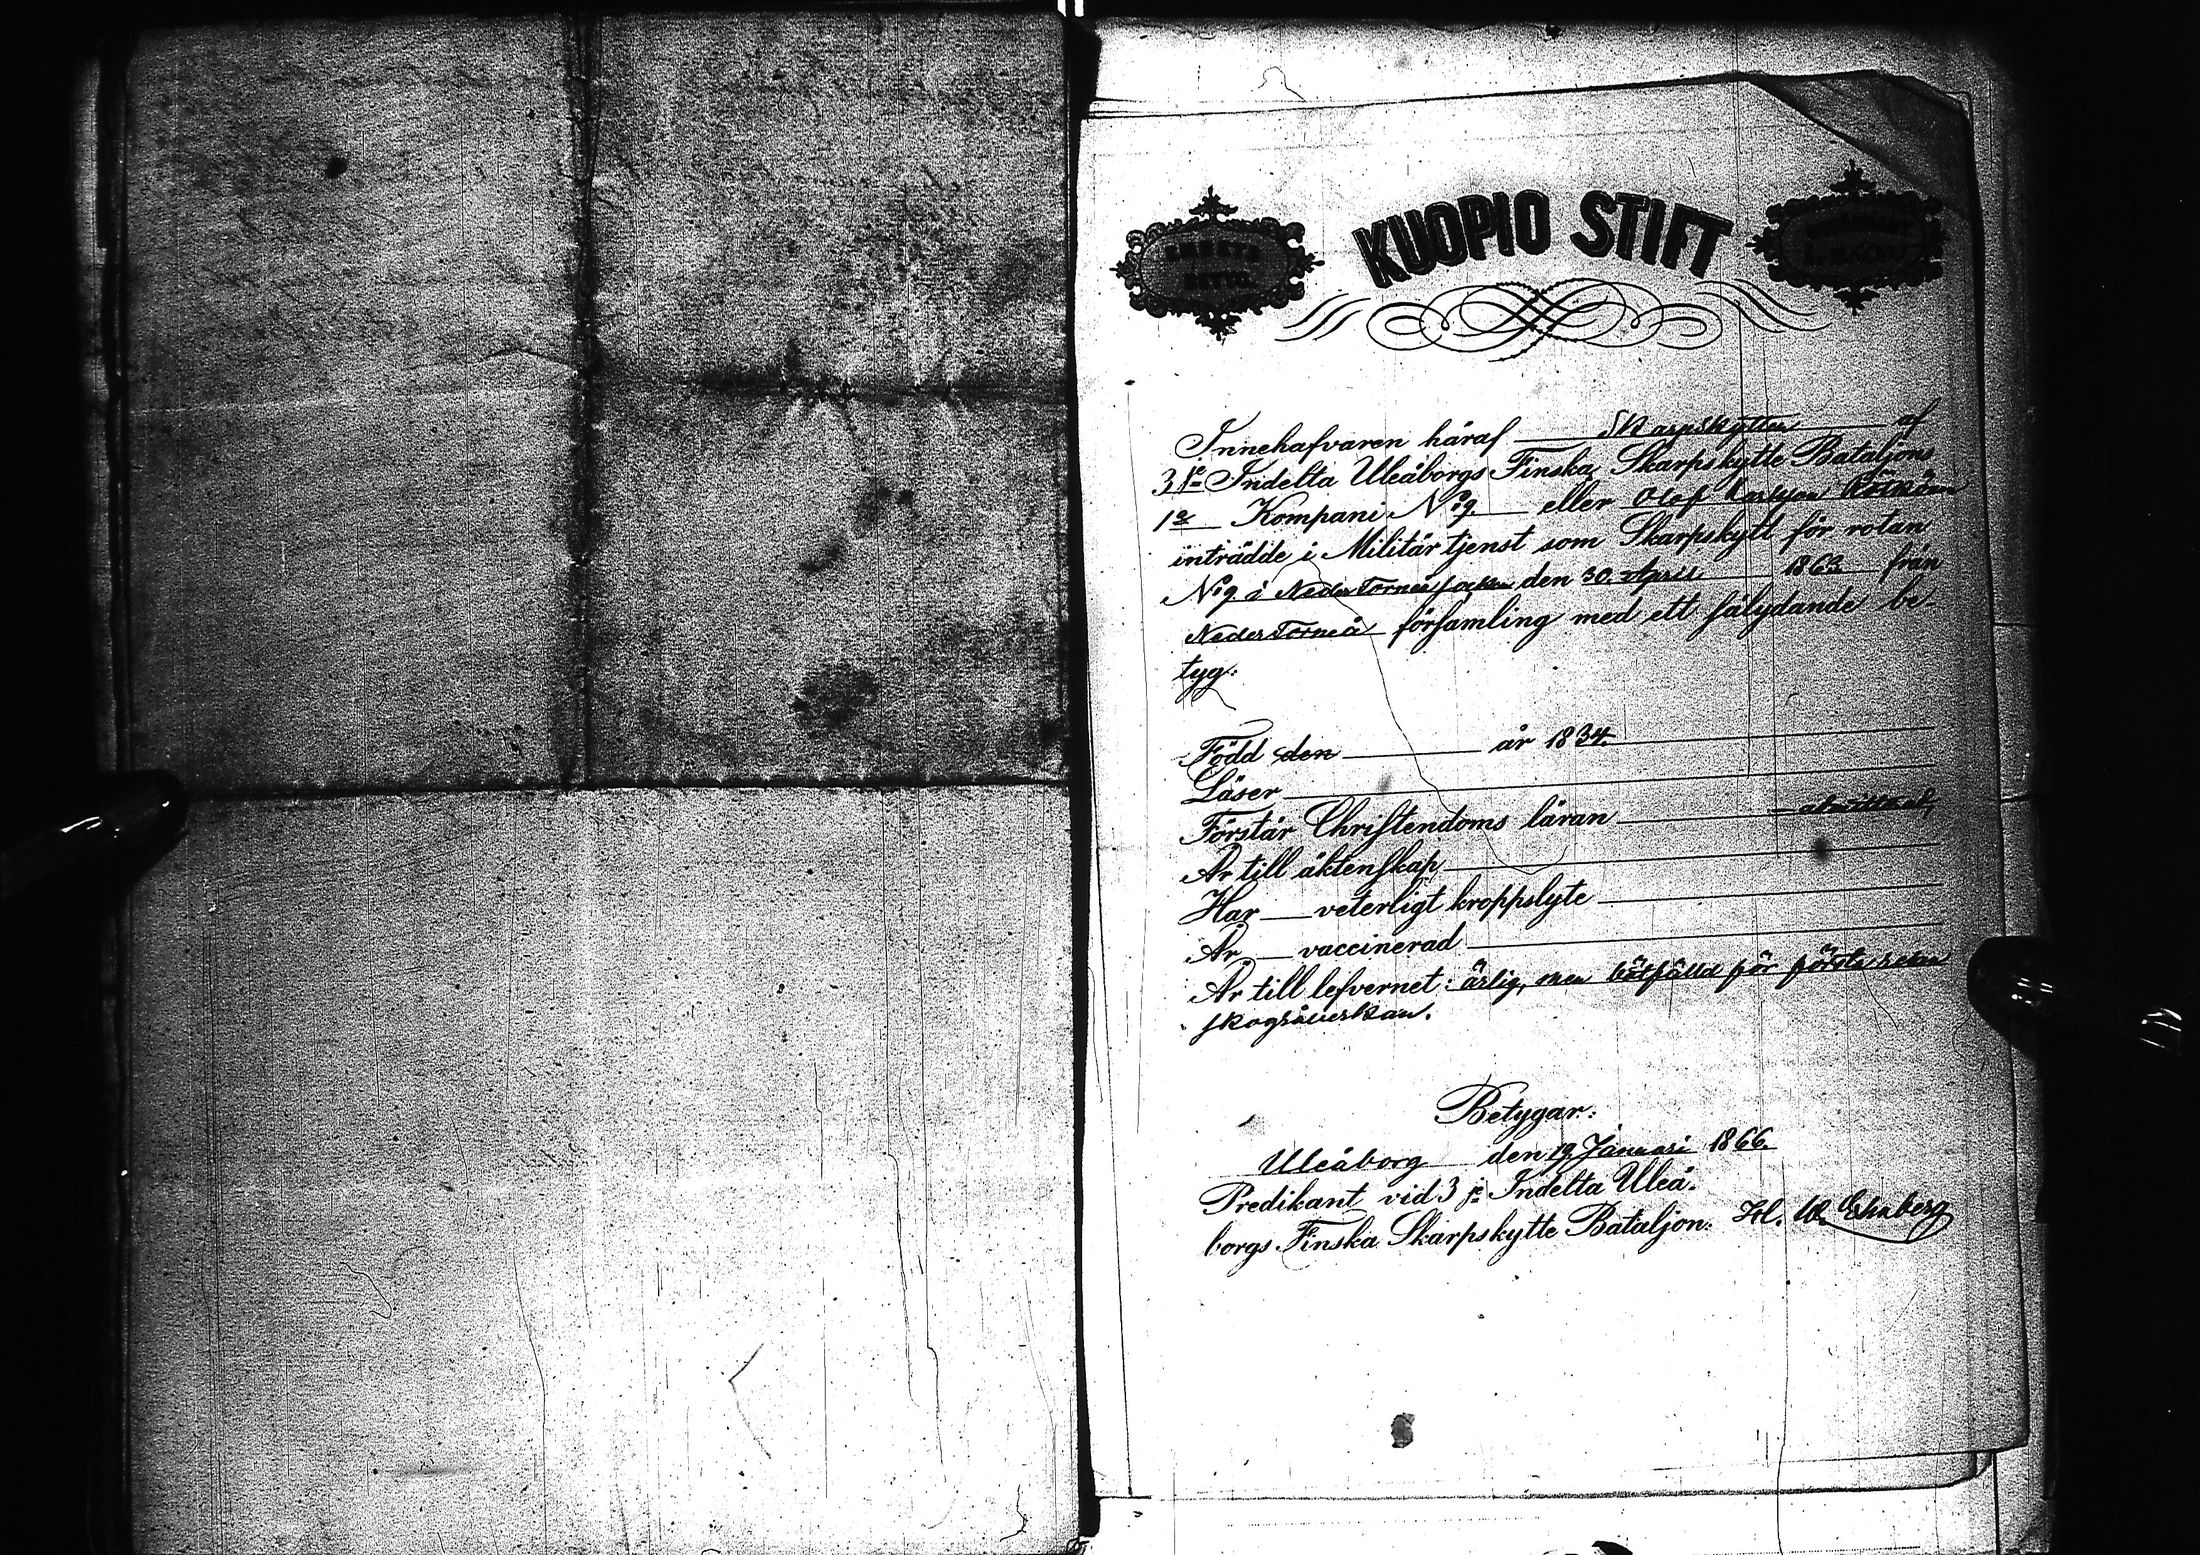 KUOPIO STIFT
EMBETS
BETYG.
Innehafvaren häraf Skarpskytten af
3je Indelta Uleåborgs Finska Skarpskytte Bataljons
1a Kompani No 9. eller Olof Karlsson
inträdde i Militärtjenst som Skarpskytt för rotan
No 9. i Neder Torneå socken den 30. April 1863 från
Neder Torneå församling med ett sålydande be-
tyg:
Född den år 1834.
Läser
Förstår Christendoms läran
Är till äktenskap
Har veterligt kroppslyte
Är vaccinerad
Är till lefvernet: ärlig, men bötfälld för första resan
skogsåverkan.
Betygar:
Uleåborg den 19 Januari 1866.
Predikant vid 3je Indelta Uleå-
borgs Finska Skarpskytte Bataljon.